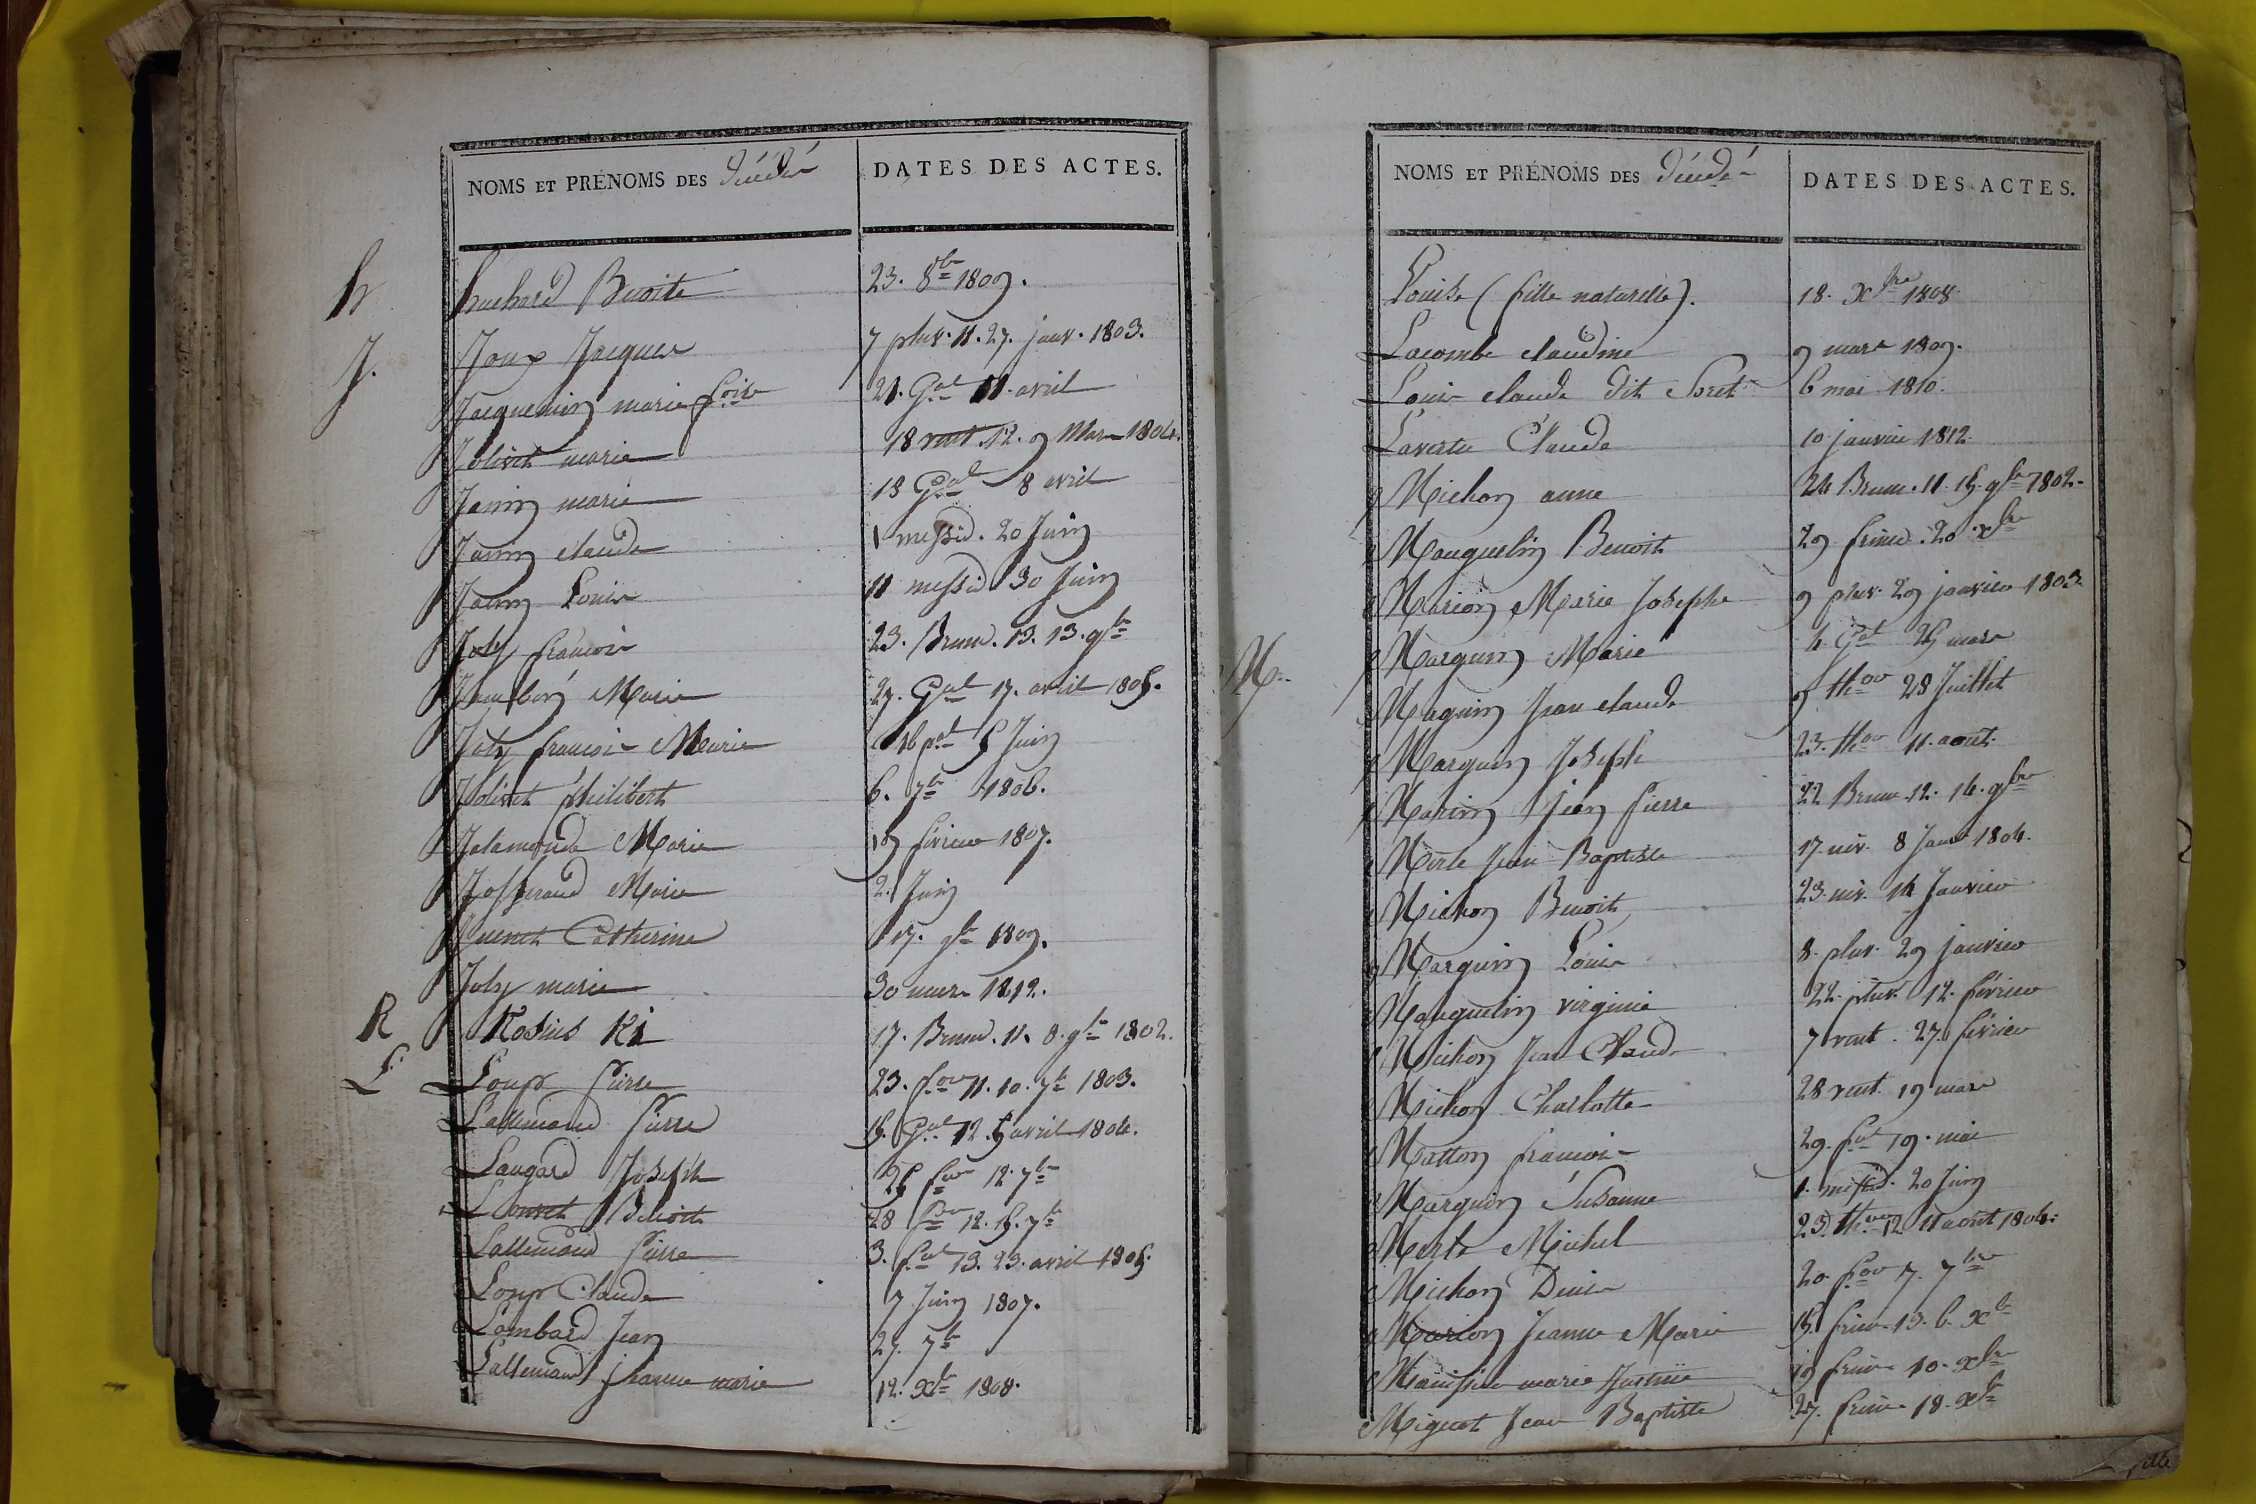 NOMS ET PRÉNOMS DES décédés
DATES DES ACTES.
h huchard Benoite 23. 8bre 1809.
J. Joux Jacques 7 pluv. 11. 27. janv. 1803.
Jacquemin marie foise 21. Gal 11. avril
Jolivet marie 18 vent. 12. 9 Mars 1804.
Janin marie 18 Gal 8 avril
Janin claude 1 messid. 20 Juin
Janin Louis 11 messid 30 Juin
Joly francois 23. Brum. 13. 13. 9bre
Marie 27. Gal 17. avril 1805.
Joly francois Marie 16 pal 5 Juin
Jolivet philibert 6. 7bre 1806.
Jalamonde Marie 19 février 1807.
Josserand Marie 2. Juin
Juenet Catherine 17. 9bre 1809.
Joly marie 30 mars 1812.
R Rosius 17. Brum. 11. 8. 9bre 1802.
L Loup Pierre 23. for 11. 10. 7bre 1803.
Lallemand Pierre 15. Gal 12. 5 avril 1804.
Laugard Joseph 25 for 12. 7bre
Louvet Benoit 28 for 12. 15. 7bre
Lallemand Pierre 3. fal 13. 23. avril 1805.
Loup Claude 7 Juin 1807.
Lombard Jean 27. 7bre
Lallemand jeanne marie 12. Xbre 1808.
NOMS ET PRÉNOMS DES décédés
DATES DES ACTES.
Louise (fille naturelle). 18. Xbre 1808
Lacombe claudine 9 mars 1809.
Louis claude dit Soret 6 mai 1810.
Lavertu Claude 10 janvier 1812
Michon anne 24 Brum. 11. 15. 9bre 1802.
Mauguelin Benoit 29 frim. 20 xbre
Marion Marie Josephe 9 pluv. 29 janvier 1803.
M. Marguin Marie 4 Gal 25 mars
Maguin Jean claude 9 thor 28 Juillet
Marguin Joseph 23. thor 11. aout.
Marin jean pierre 22 Brum 12. 14. 9bre
Merle Jean Baptiste 17. niv. 8 Janv 1804.
Michon Benoit 23. niv. 14 Janvier
Marguin Louis 8. pluv. 29 janvier
Mauguelin virginie 22. pluv. 12. février
Michon Jean Claude 7 vent. 27. février
Michon Charlotte 28 vent. 19 mars
Matton francois 29. fal 19. mai
Marguin Susanne 1. messid. 20 Juin
Merle Michel 23. thor 12 11 aout 1804.
Michon Denis 20. for 7. 7bre
Marion Jeanne Marie 15. frim. 13. 6. Xbre
marie Justine 19 frim. 10. xbre
Miguet Jean Baptiste 27. frim. 18. xbre